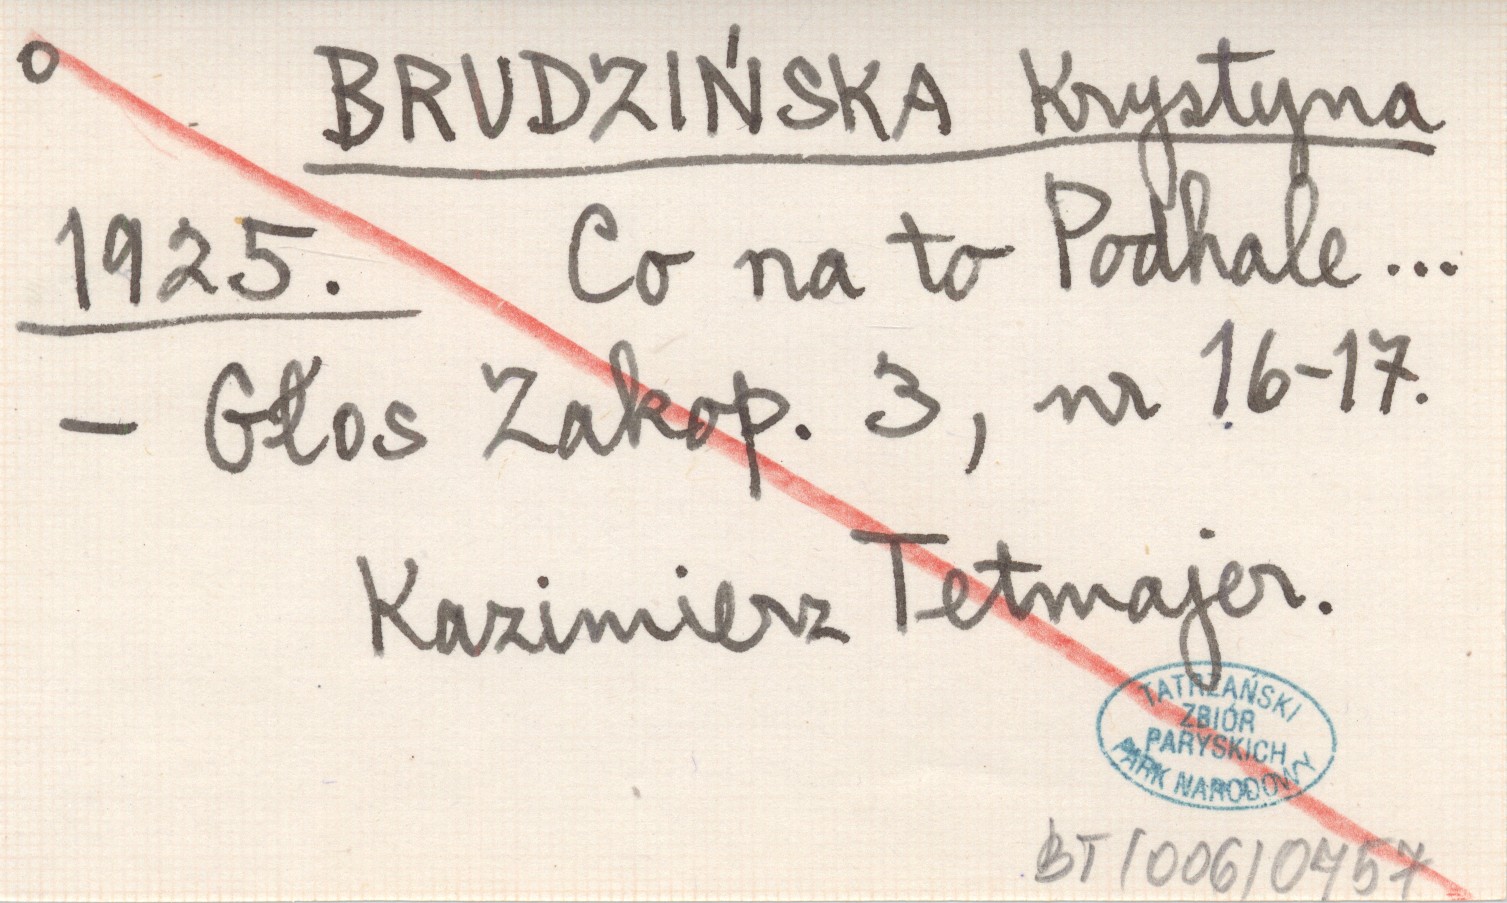 o BRUDZIŃSKA Krystyna
1925. Co na to Podhale...
– Głos Zakop. 3, nr 16-17.
Kazimierz Tetmajer.
TATRZAŃSKI
ZBIÓR
PARYSKICH
PARK NARODOWY
BT/006/0457